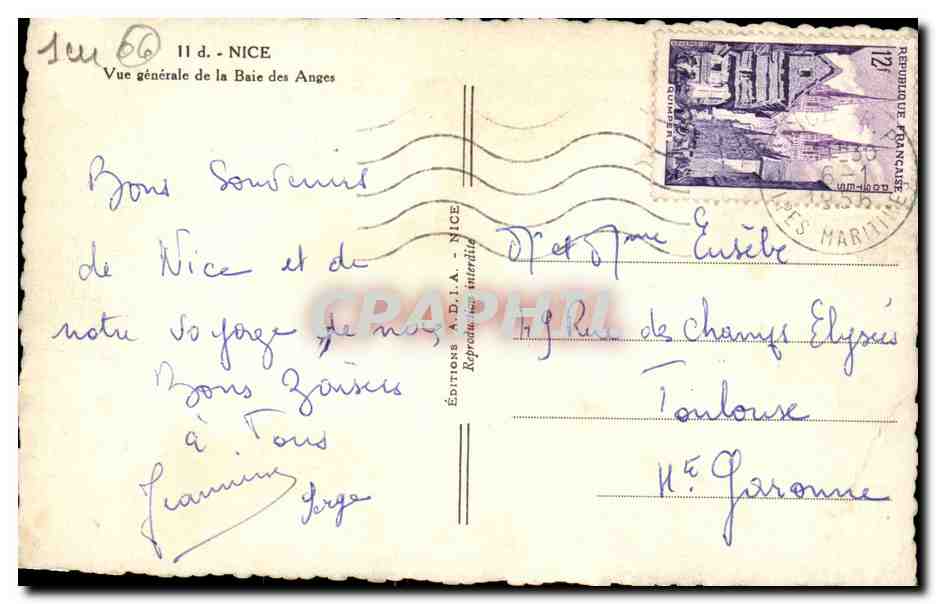 11 d. - NICE
Vue générale de la Baie des Anges
66
Bons Souvenirs
de Nice et de
notre voyage de noces
Bons Baisers
à Tous
Jeannine
Serge
ÉDITIONS A.D.I.A. - NICE
Reproduction interdite
Mr et Mme Eusèbe
49 Rue des Champs Elysées
Toulouse
Hte Garonne
REPUBLIQUE FRANÇAISE
12f
POSTES
QUIMPER
6-1
1956
ALPES MARITIMES
CRAPHIL